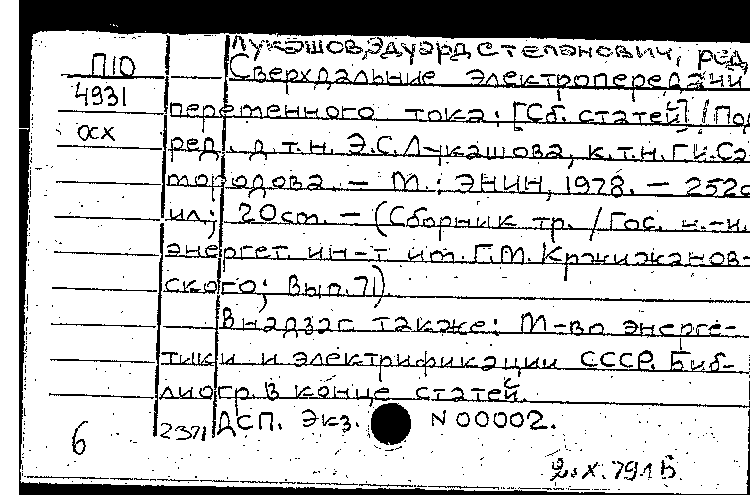 Лукашов, Эдуард Степанович, ред.
П10
Сверхдальние электропередачи
4931
переменного тока: [Сб. статей] / Под
осх
ред. д.т.н. Э.С. Лукашова, к.т.н. Г.И. Са-
мородова. — М.: ЭНИН, 1978. — 252с
ил; 20cm. — (Сборник тр. / Гос. н.-и.
энергет. ин-т им. Г.М. Кржижанов-
ского; Вып. 71).
В надзаг также: М-во энерге-
тики и электрификации СССР. Биб-
лиогр. в конце статей.
2371 ДСП. Экз. N 00002.
6